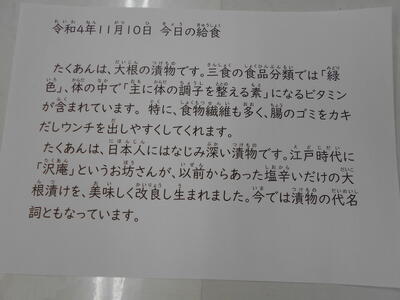 令和4年11月10日 今日の給食
たくあんは、大根の漬物です。三食の食品分類では「緑
色」、体の中で「主に体の調子を整える素」になるビタミン
が含まれています。特に、食物繊維も多く、腸のゴミをカキ
だしウンチを出しやすくしてくれます。
たくあんは、日本人にはなじみ深い漬物です。江戸時代に
「沢庵」というお坊さんが、以前からあった塩辛いだけの大
根漬けを、美味しく改良し生まれました。今では漬物の代名
詞ともなっています。